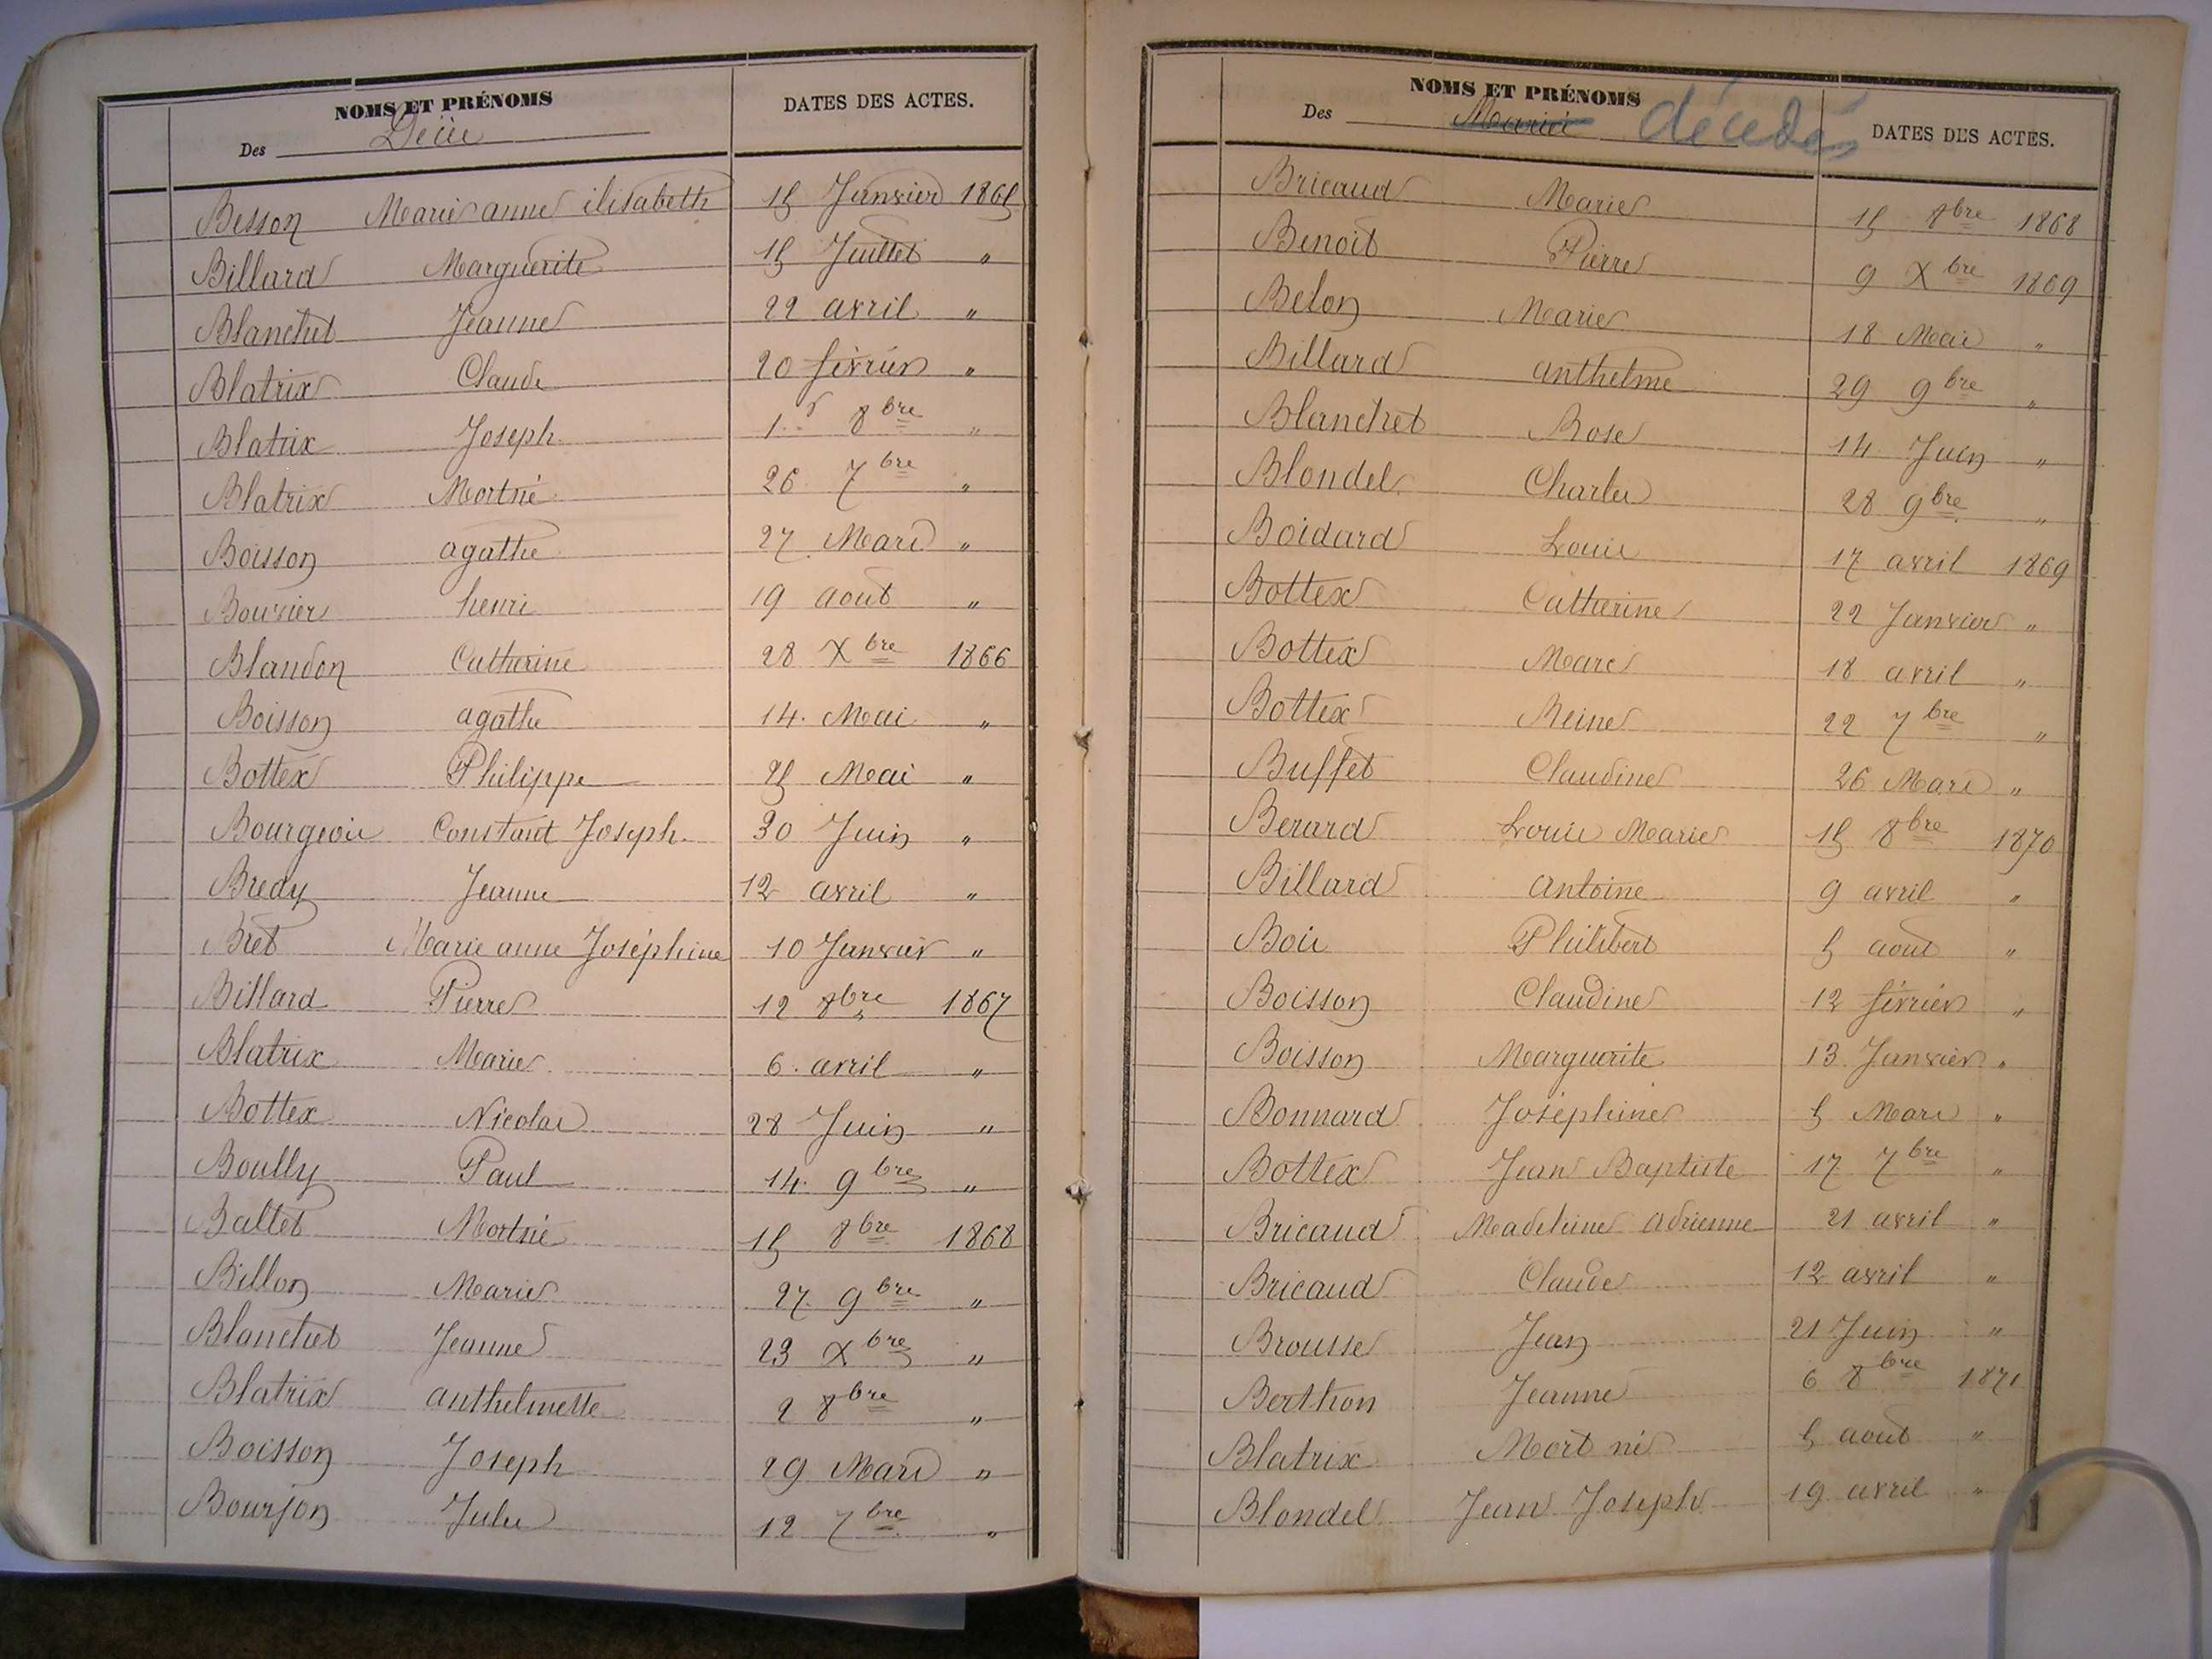 NOMS ET PRÉNOMS
Des Décès
DATES DES ACTES.
Besson Marie anne élisabeth 15 Janvier 1865
Billard Marguerite 15 Juillet "
Blanchet Jeanne 22 avril "
Blatrix Claude 20 février "
Blatrix Joseph 1er 8bre "
Blatrix Mortné 26 7bre "
Boisson agathe 27 Mars "
Bouvier henri 19 août "
Blandon Catherine 28 Xbre 1866
Boisson agathe 14. Mai "
Bottex Philippe 25 Mai "
Bourgeois Constant Joseph. 30 Juin "
Bredy Jeanne 12 avril "
Bret Marie anne Joséphine 10 Janvier "
Billard Pierre 12 8bre 1867
Blatrix Marie 6. avril "
Bottex Nicolas 28 Juin "
Boully Paul 14. 9bre "
Ballet Mortné 15 8bre 1868
Billon Marie 27. 9bre "
Blanchet Jeanne 23 Xbre "
Blatrix anthelmette 2 8bre "
Boisson Joseph 29 Mars "
Bourjon Jules 12 7bre "
NOMS ET PRÉNOMS
Des Mariés décédés
DATES DES ACTES.
Bricaud Marie 15 8bre 1868
Benoit Pierre 9 Xbre 1869
Belon Marie 18 Mai "
Billard anthelme 29 9bre "
Blanchet Rose 14. Juin "
Blondel Charles 28 9bre "
Boidard Louis 17 avril 1869
Bottex Catherine 22 Janvier "
Bottex Marc 18 avril "
Bottex Reine 22 7bre "
Buffet Claudine 26 Mars "
Berard Louis Marie 15 8bre 1870
Billard Antoine 9 avril "
Bois Philibert 5 août "
Boisson Claudine 12 février "
Boisson Marguerite 13 Janvier "
Bonnard Joséphine 5 Mars "
Bottex Jean Baptiste 17 7bre "
Bricaud Madeleine Adrienne 21 avril "
Bricaud Claude 12 avril "
Brousse Jean 21 Juin "
Berthon Jeanne 6 8bre 1871
Blatrix Mort né 5 août "
Blondel Jean Joseph 19 avril "